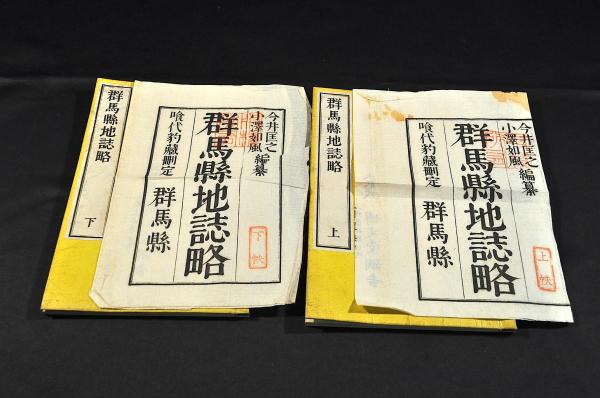 今井匡之
小澤如風
編纂
群馬縣地誌略
喰代豹藏刪定
群馬縣
上帙
群馬縣地誌略
上
今井匡之
小澤如風
編纂
群馬縣地誌略
喰代豹藏刪定
群馬縣
下帙
群馬縣地誌略
下